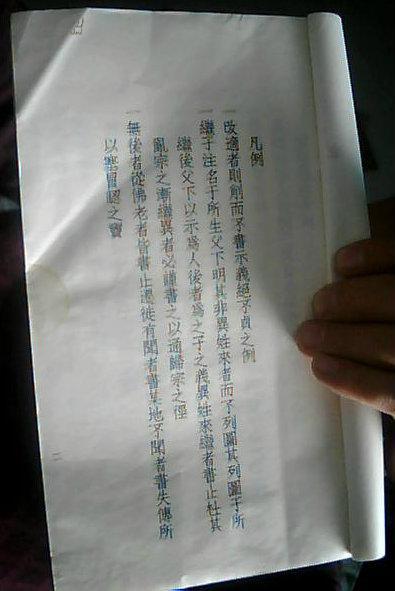 凡例
一改適者則削而不書示義絕不貞之例
一繼子注名于所生父下明其非異姓來者而不列圖其列圖于所
繼後父下以示為人後者為之子之義異姓來繼者書止杜其
亂宗之漸繼異者必謹書之以通歸宗之徑
一無後者從佛老者皆書止遷徙有聞者書某地不聞者書失傳所
以塞冒認之竇
二